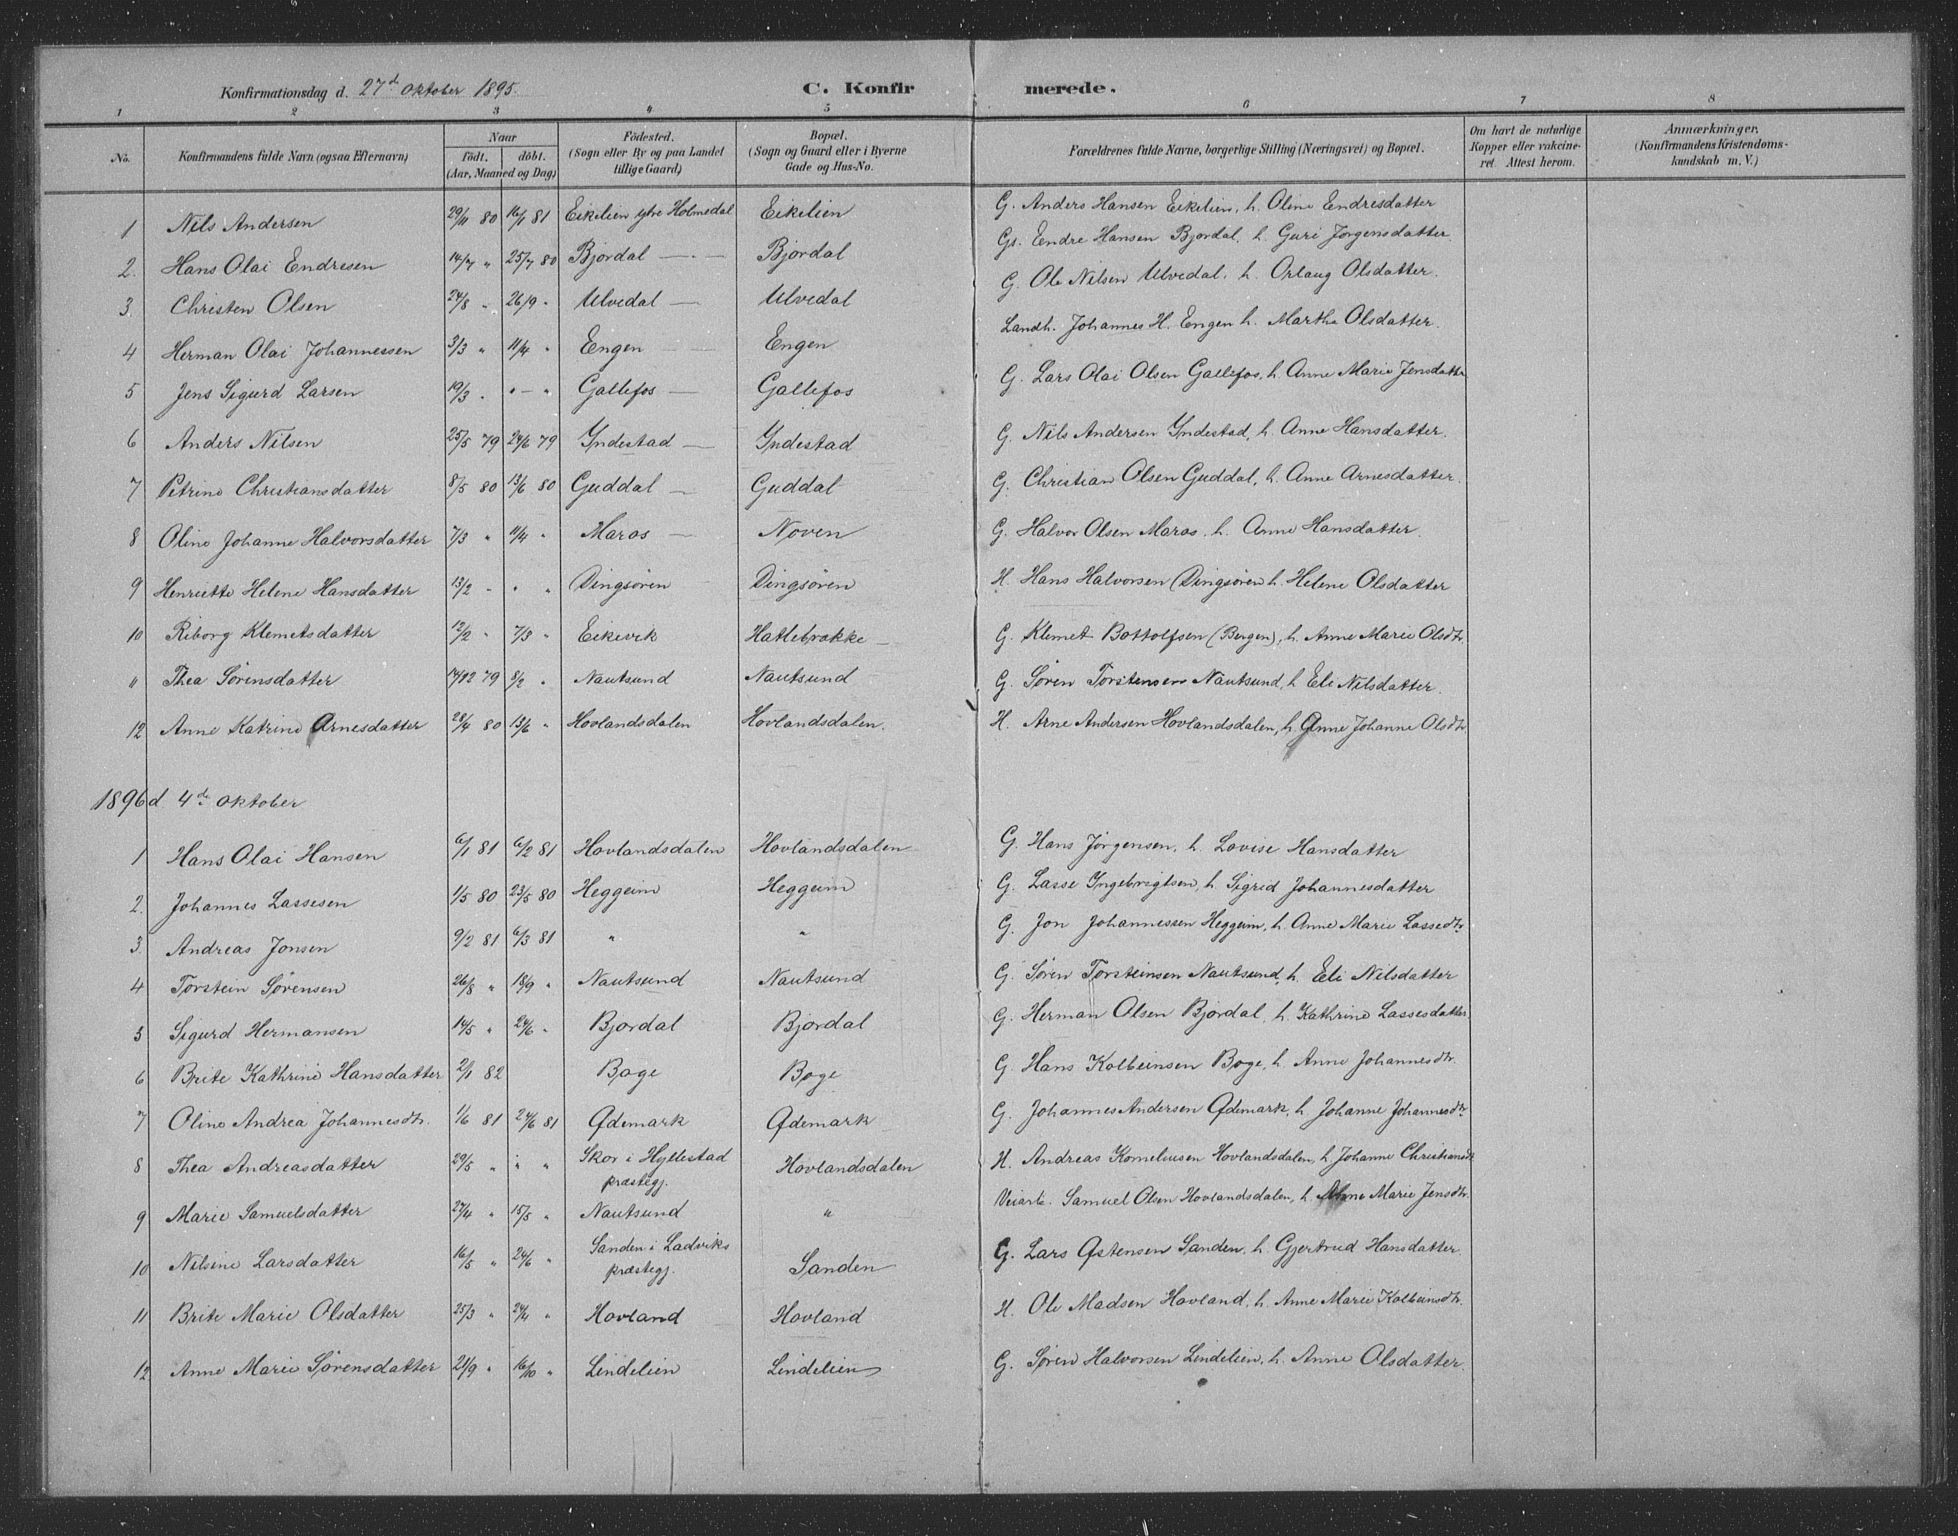 Konfirmationsdag d. 27d Oktober 1895. C. Konfirmerede.
1 2 3 4 5 6 7 8
No. Konfirmandens fulde Navn (ogsaa Efternavn) Naar födt. döbt. (Aar, Maaned og Dag) Födested. (Sogn eller By og paa Landet tillige Gaard) Bopæl. (Sogn og Gaard eller i Byerne Gade og Hus-No. Forældrenes fulde Navne, borgerlige Stilling (Næringsvei) og Bopæl. Om havt de naturlige Kopper eller vakcineret. Attest herom. Anmærkninger. (Konfirmandens Kristendomskundskab m. V.)
1 Nils Andersen 29/11 80 16/1 81 Eikilien ytre Holmedal Eikilien G. Anders Hansen Eikilien, h. Oline Endresdatter
2. Hans Olai Endresen 14/7 " 25/7 80 Bjordal — . — Bjordal Gs. Endre Hansen Bjordal, h. Guri Jørgensdatter
3. Christen Olsen 24/8 " 26/9 " Ulvedal — Ulvedal G. Ole Nilsen Ulvedal, h. Orlaug Olsdatter.
4 Herman Olai Johannessen 3/3 " 11/4 " Engen — Engen Landh. Johannes H. Engen h. Martha Olsdatter.
5 Jens Sigurd Larsen 19/3 " " — " Gallefos — Gallefos G. Lars Olai Olsen Gallefos, h. Anne Marie Jensdatter
6 Anders Nilsen 25/5 79 24/6 79 Yndestad — Yndestad G. Nils Andersen Yndestad, h. Anne Hansdatter.
7 Petrine Christiansdatter 8/5 80 13/6 80 Guddal — Guddal G. Christian Olsen Guddal, h. Anne Arnesdatter.
8 Oline Johanne Halvorsdatter 7/3 " 11/4 " Maros — Noven G. Halvor Olsen Maros, h. Anne Hansdatter.
9 Henriette Helene Hansdatter 13/2 " " " Dingsøren Dingsøren H. Hans Halvorsen Dingsøren h. Helene Olsdatter
10 Riborg Klemetsdatter 12/2 " 7/3 " Eikevik Hatlebrække — G. Klemet Bottolfsen (Bergen), h. Anne Marie Olsdtr.
" Thea Sørensdatter 14/12 79 8/2 " Nautsund Nautsund G. Søren Torstensen Nautsund, h. Eli Nilsdatter.
12 Anne Katrine Arnesdatter 28/4 80 13/6 " Hovlandsdalen Hovlandsdalen. H. Arne Andersen Hovlandsdalen, h. Anne Johanne Olsdtr.
1896 d 4de Oktober
1 Hans Olai Hansen 6/1 81 6/2 81 Hovlandsdalen Hovlandsdalen G. Hans Jørgensen, h. Lovise Hansdatter
2. Johannes Lassesen 1/5 80 23/5 80 Heggeim Heggeim G. Lasse Ingebrigtsen, h. Sigrid Johannesdatter
3. Andreas Jonsen 9/2 81 6/3 81 " " G. Jon Johannessen Heggeim, h. Anne Marie Lassedtr
4 Torstein Sørensen 26/8 " 18/9 " Nautsund Nautsund G. Søren Torsteinsen Nautsund, h. Eli Nilsdatter
5 Sigurd Hermansen 14/5 " 24/6 " Bjordal Bjordal G. Herman Olsen Bjordal, h. Kathrine Lassesdatter
6 Brite Kathrine Hansdatter 2/1 82 Boge Boge G. Hans Kolbeinsen Boge, h. Anne Johannesdtr.
7 Oline Andrea Johannesdtr. 1/6 81 24/6 81 Ødemark Ødemark G. Johannes Andersen Ødemark, h. Johanne Johannesdtr.
8 Thea Andreasdatter 29/5 " " " Skor i Hyllestad præstegj. Hovlandsdalen H. Andreas Korneliusen Hovlandsdalen, h. Johanne Christiansdtr
9 Marie Samuelsdatter 27/4 " 15/5 " Nautsund " Veiarb. Samuel Olsen Hovlandsdalen, h. Anne Marie Jensdtr.
10 Nilsine Larsdatter 16/5 " 24/6 " Sanden i Ladviks præstegj. Sanden G. Lars Østensen Sanden, h. Gjertrud Hansdatter.
11 Brite Marie Olsdatter 25/3 " 24/4 " Hovland Hovland H. Ole Madsen Hovland, h. Anne Marie Kolbeinsdtr.
12 Anne Marie Sørensdatter 21/9 " 16/10 " Lindelien Lindelien G. Søren Halvorsen Lindelien, h. Anne Olsdatter.